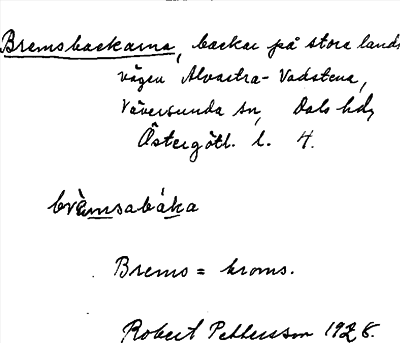 Bremsbackarna, backar på stora lands
vägen Alvastra-Vadstena,
Väversunda sn, Dals hd,
Östergötl. l. 4.
bræmsabáka
Brems = broms.
Robert Pettersson 1928.